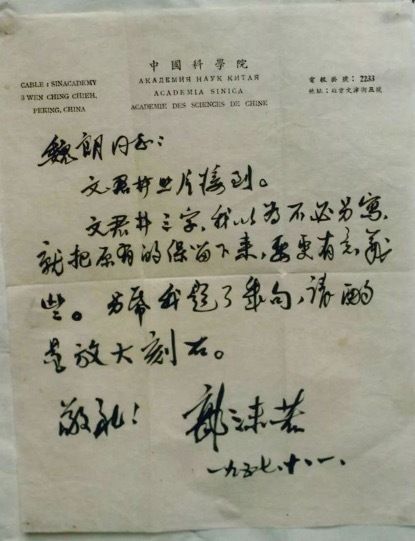 中國科學院
АКАДЕМИЯ НАУК КИТАЯ
ACADEMIA SINICA
ACADEMIE DES SCIENCES DE CHINE
CABLE: SINACADEMY
3 WEN CHING CHIEH,
PEKING, CHINA
電報掛號: 2233
地址: 北京文津街三號
魏朗同志:
文君井照片接到。
文君井三字,我以为不必另寫,
就把原有的保留下来,要更有意義
些。另
外我题了几句,请酌
量放大刻石。
敬礼!
郭沫若
一九五七.十.一.